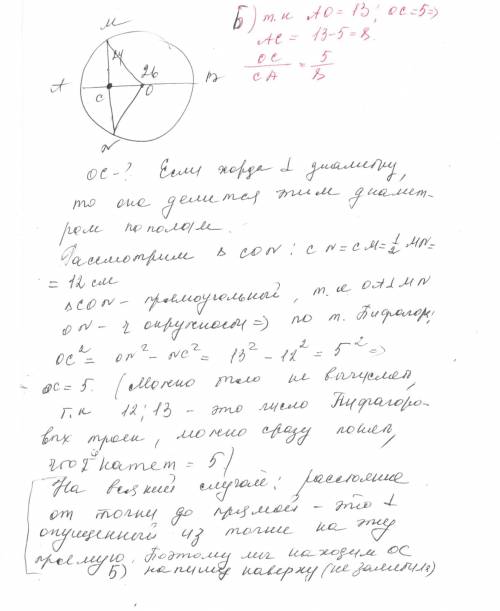 М
24
26
А
С
О
В
N
Б) т.к АО = 13; ОС=5 =>
АС = 13-5 = 8.
ОС/СА = 5/8
ОС-? Если хорда ⊥ диаметру,
то она делится этим диамет-
ром пополам.
Рассмотрим Δ CON: CN = CM = 1/2 MN =
= 12 см
ΔCON - прямоугольный, т.к OA⊥MN
ON - r окружности => по т. Пифагор;
OC² = ON² - NC² = 13² - 12² = 5² =>
OC = 5. (Можно было не вычислять,
т.к 12; 13 - это числа Пифагоро-
вых троек, можно сразу понять,
что 2й катет = 5)
На всякий случай: расстояние
от точки до прямой - это ⊥
опущенный из точки на эту
прямую. Поэтому мы находим ОС
Б) напишу наверху (не заметила)